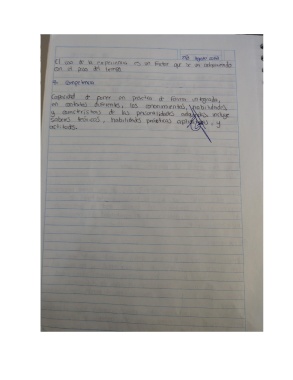 El uso de la experiencia es un factor que se va adquiriendo
con el paso del tiempo.
Competencia
Capacidad de poner en práctica de forma integrada,
en contextos diferentes, los conocimientos, habilidades
y características de la personalidad adquiridas. Incluye
Saberes teóricos, habilidades prácticas aplicativas, y
actitudes.